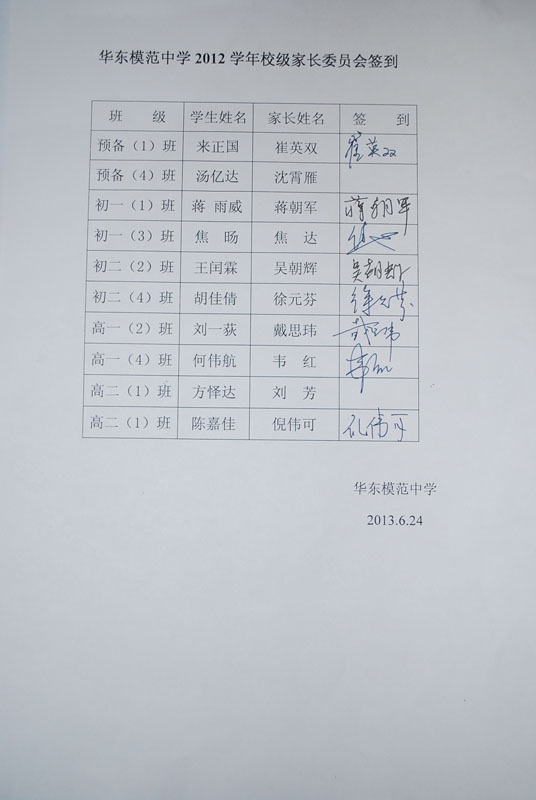 华东模范中学 2012 学年校级家长委员会签到
班 级 学生姓名 家长姓名 签 到
预备（1）班 来正国 崔英双 崔英双
预备（4）班 汤亿达 沈霄雁
初一（1）班 蒋 雨威 蒋朝军 蒋朝军
初一（3）班 焦 旸 焦 达
初二（2）班 王闰霖 吴朝辉 吴朝辉
初二（4）班 胡佳倩 徐元芬 徐元芬
高一（2）班 刘一荻 戴思玮 戴思玮
高一（4）班 何伟航 韦 红 韦红
高二（1）班 方怿达 刘 芳
高二（1）班 陈嘉佳 倪伟可 倪伟可
华东模范中学
2013.6.24